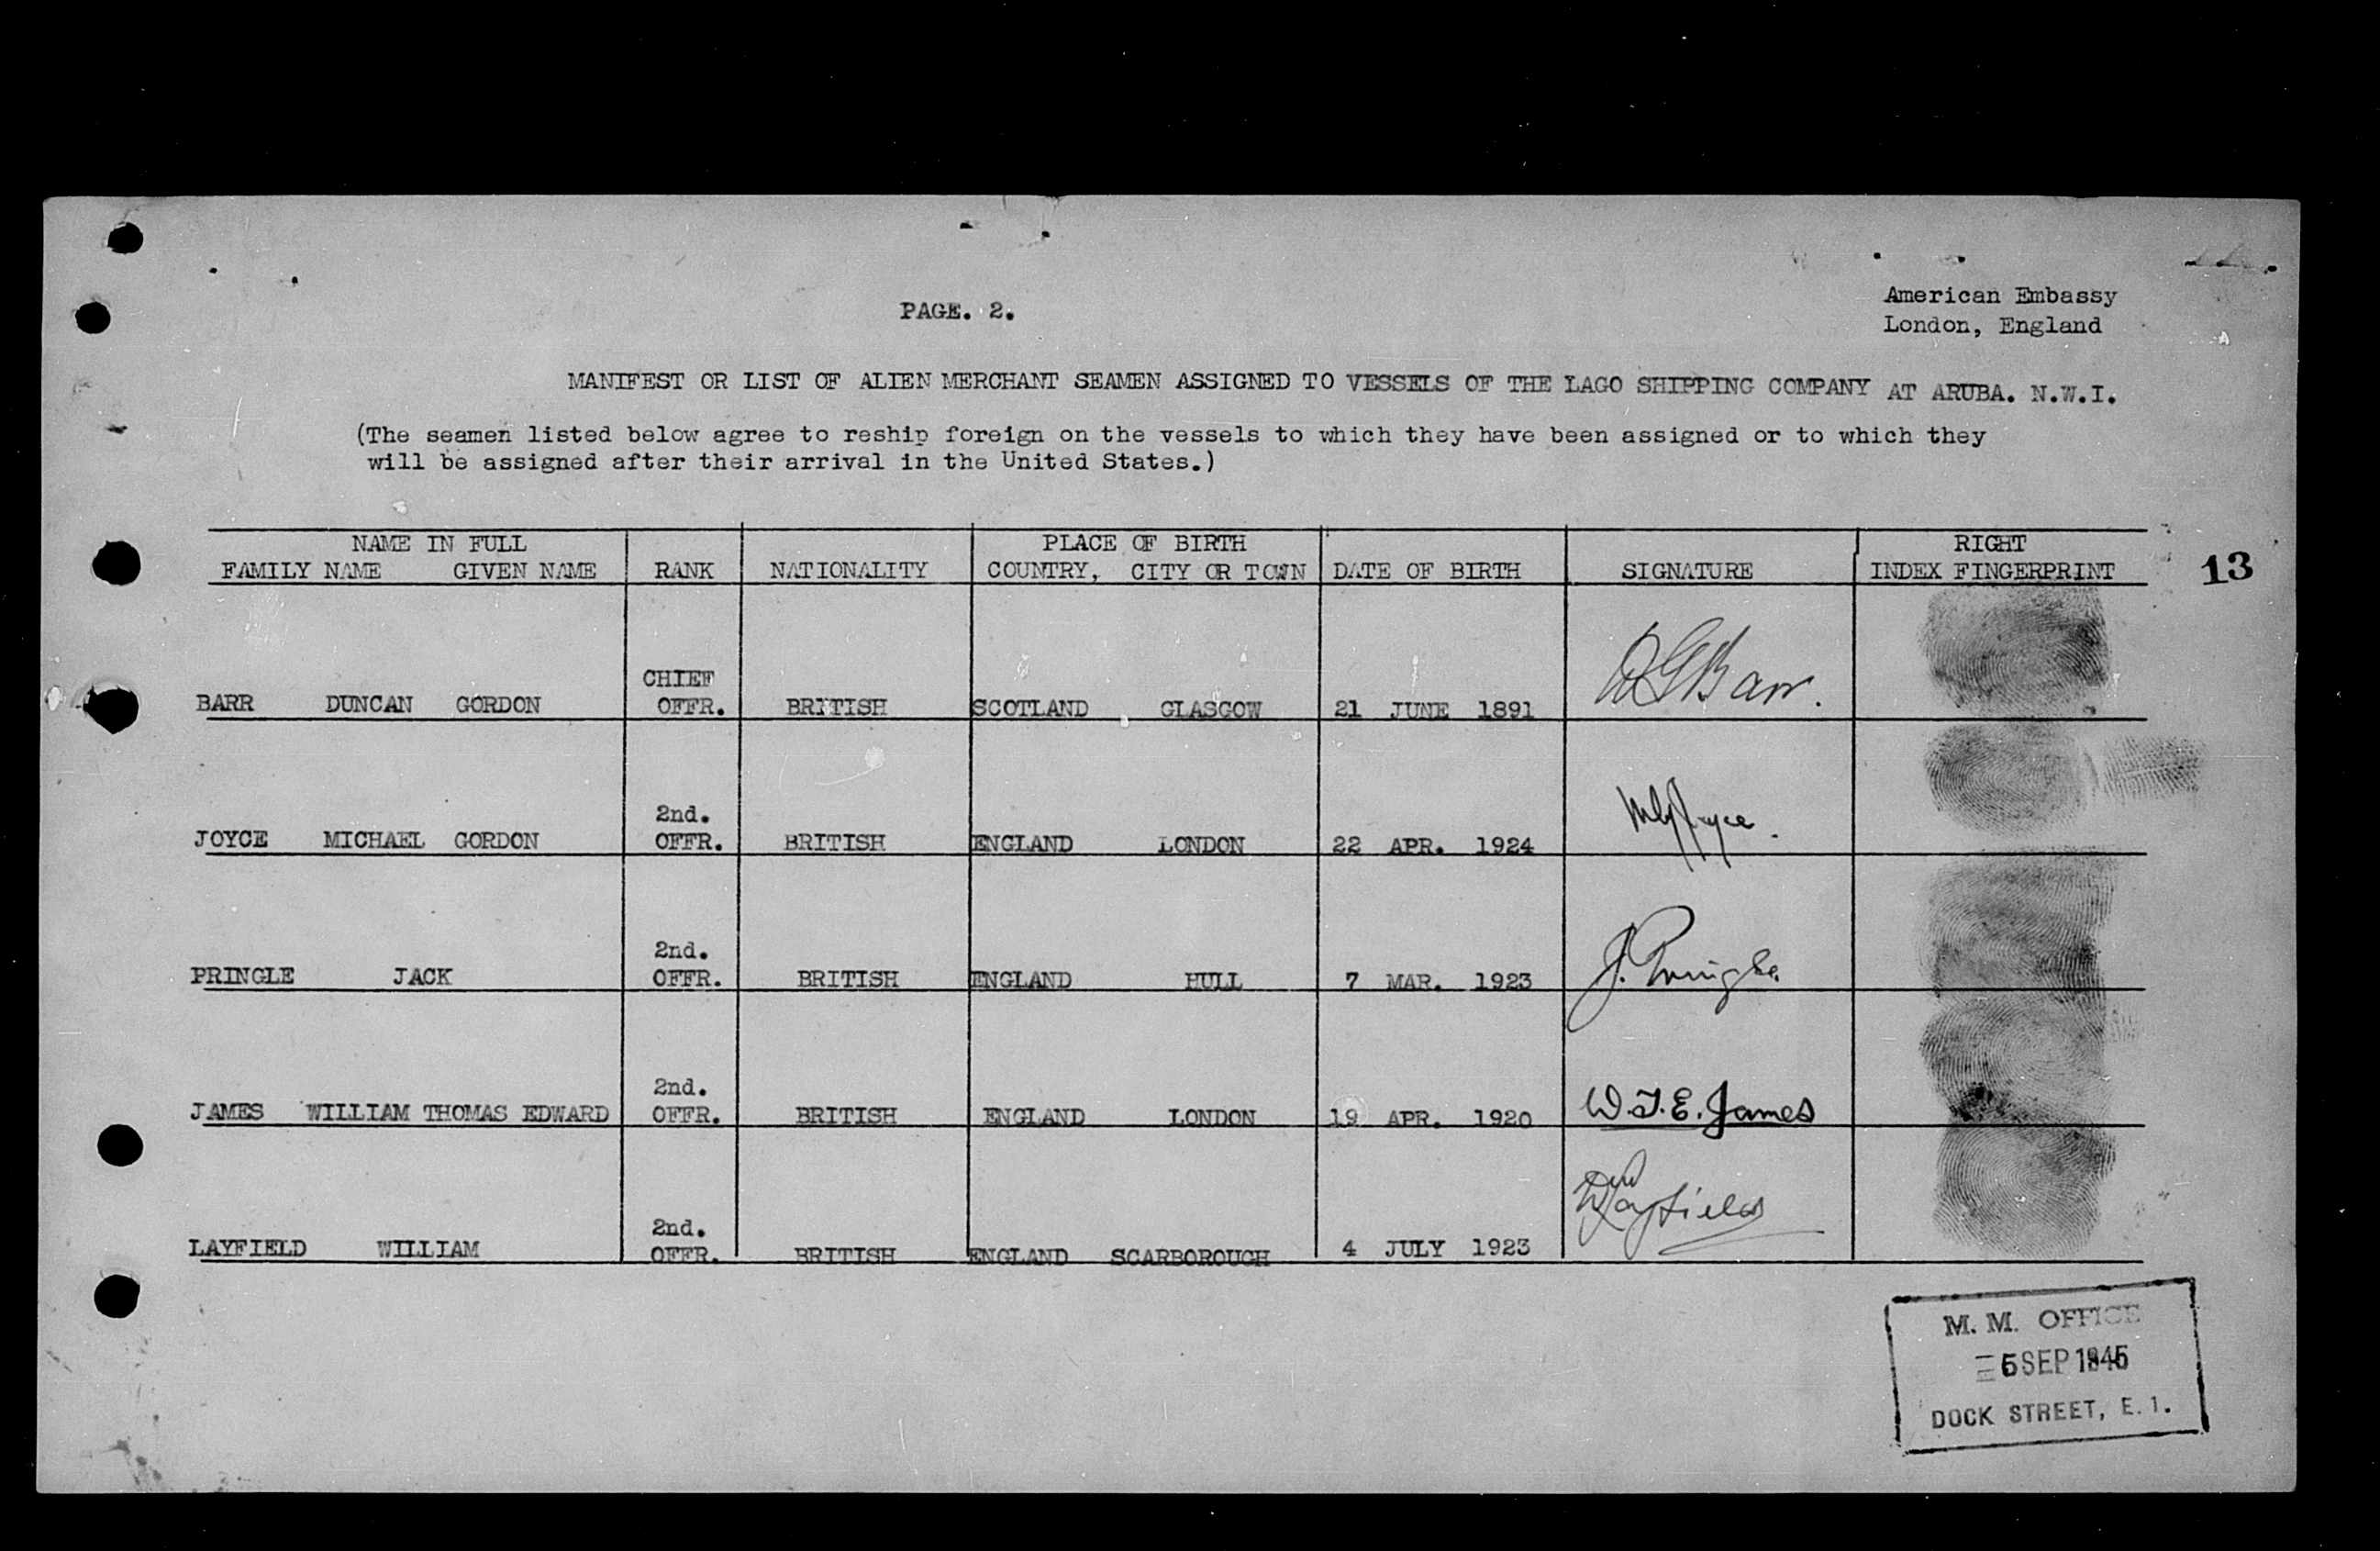 PAGE. 2.
American Embassy
London, England
MANIFEST OR LIST OF ALIEN MERCHANT SEAMEN ASSIGNED TO VESSELS OF THE LAGO SHIPPING COMPANY AT ARUBA. N.W.I.
(The seamen listed below agree to reship foreign on the vessels to which they have been assigned or to which they
will be assigned after their arrival in the United States.)
NAME IN FULL PLACE OF BIRTH RIGHT
FAMILY NAME GIVEN NAME RANK NATIONALITY COUNTRY, CITY OR TOWN DATE OF BIRTH SIGNATURE INDEX FINGERPRINT
13
CHIEF
BARR DUNCAN GORDON OFFR. BRITISH SCOTLAND GLASGOW 21 JUNE 1891 DGBarr.
2nd.
JOYCE MICHAEL GORDON OFFR. BRITISH ENGLAND LONDON 22 APR. 1924 MGJoyce.
2nd.
PRINGLE JACK OFFR. BRITISH ENGLAND HULL 7 MAR. 1923 J. Pringle.
2nd.
JAMES WILLIAM THOMAS EDWARD OFFR. BRITISH ENGLAND LONDON 19 APR. 1920 W.T.E. James
2nd.
LAYFIELD WILLIAM OFFR. BRITISH ENGLAND SCARBOROUGH 4 JULY 1923 WLayfield
M. M. OFFICE
SEP 1945
DOCK STREET, E. 1.